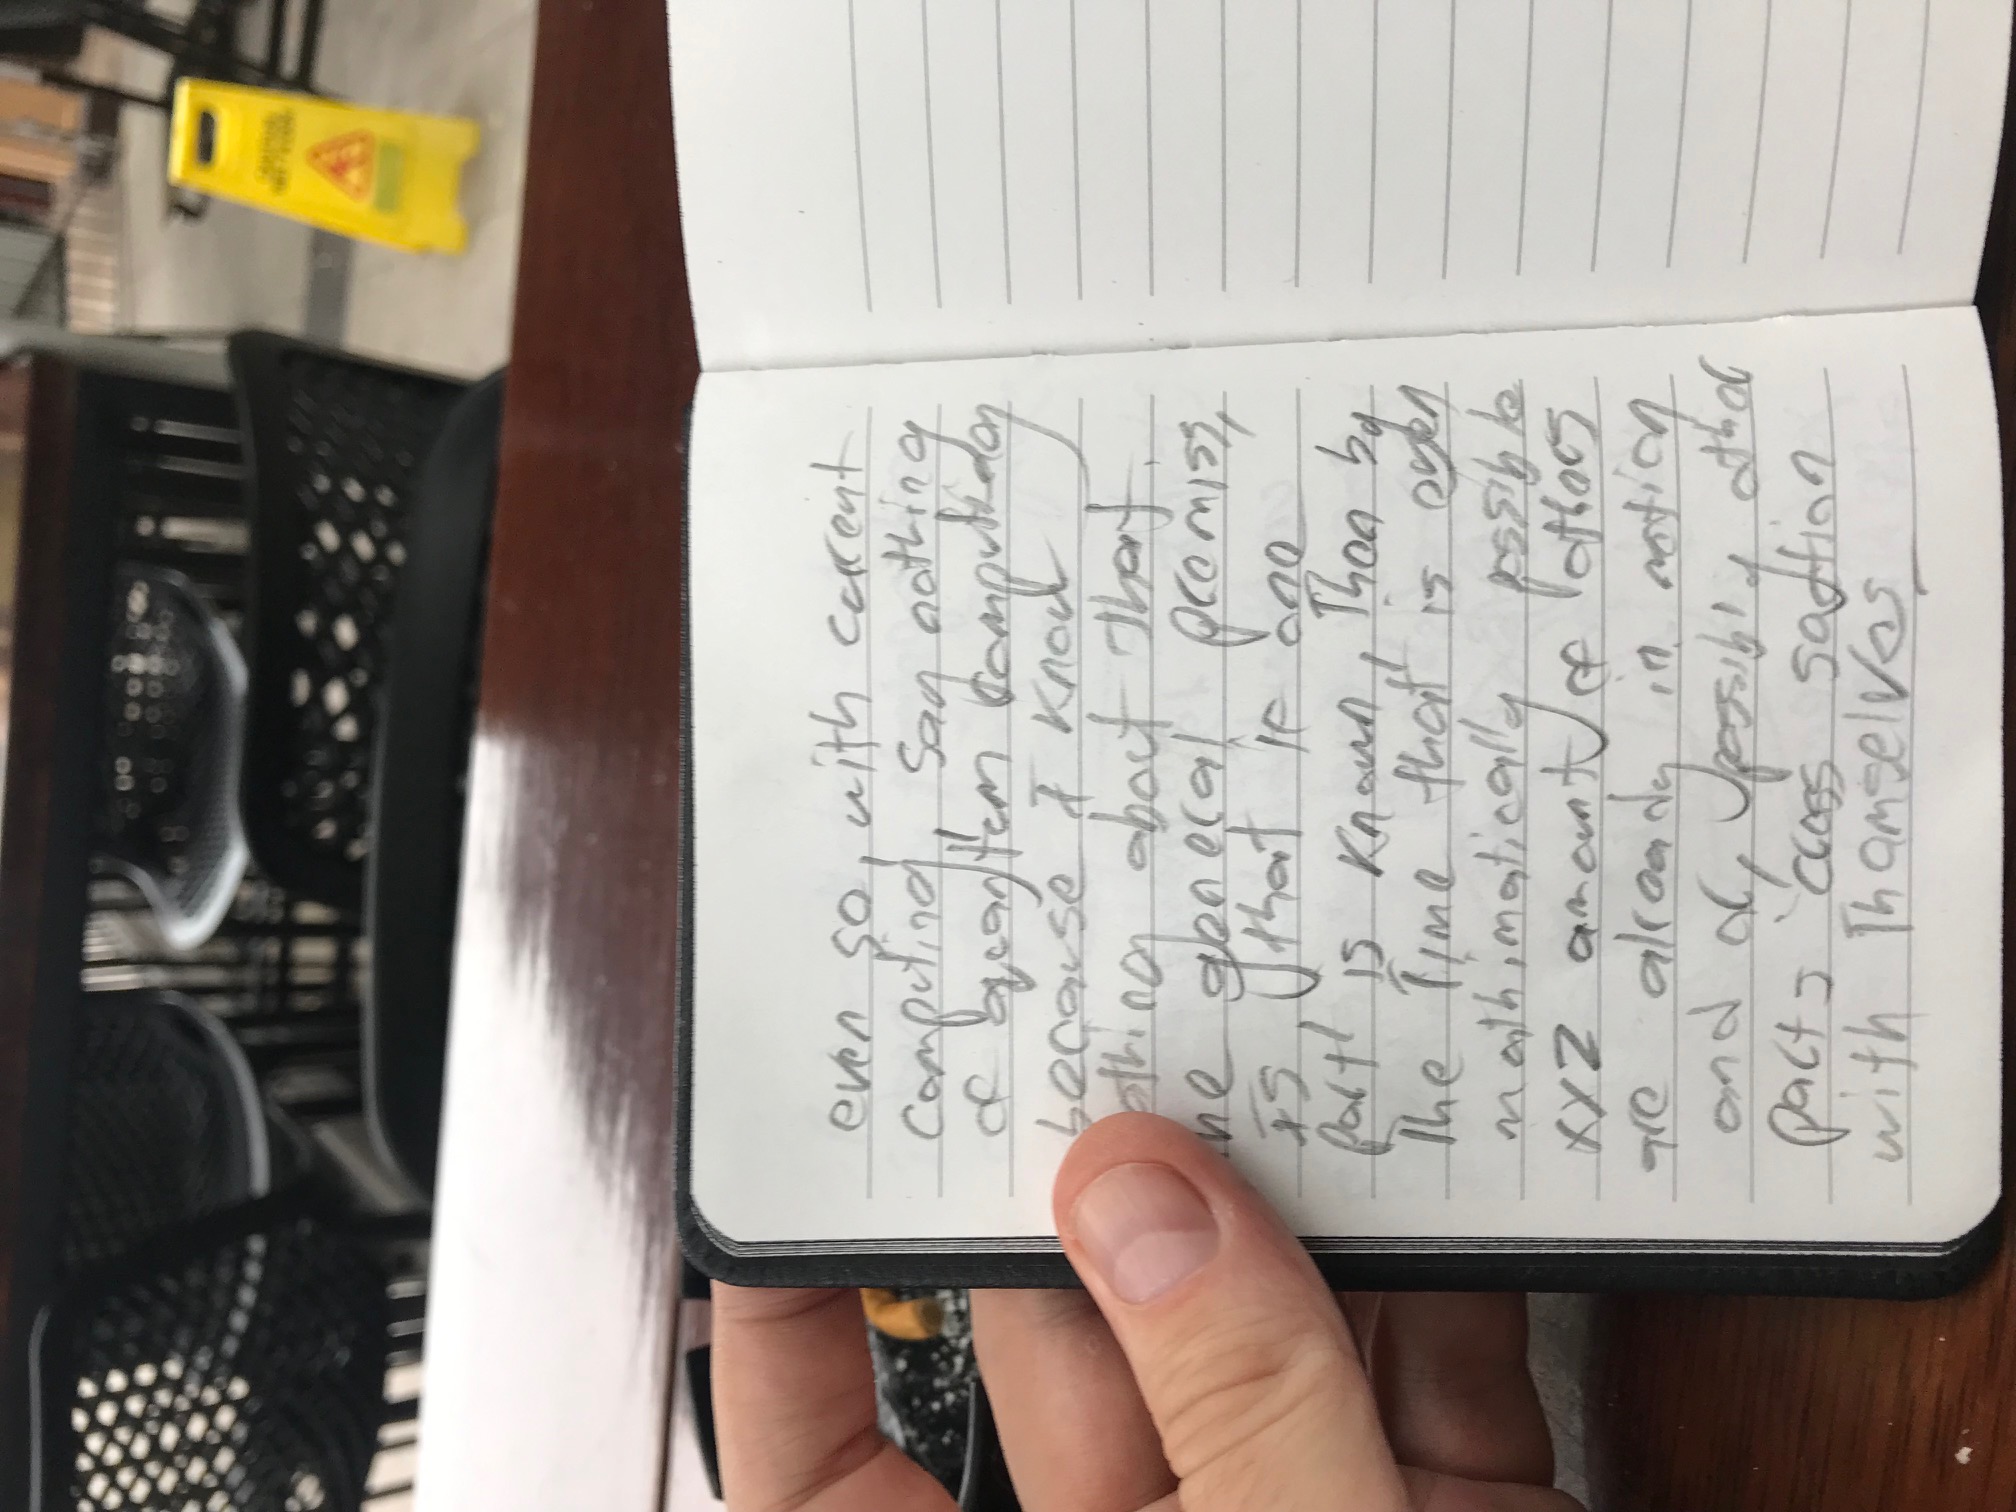 even so, with current
computing say nothing
of quantum computation
because I know
nothing about that.
the general premise,
Is that if one
part is known, Then by
The Time that is even
mathimatically possible
XYZ amount of
are already in motion
and or, possibly other
parts cross
with Themselves